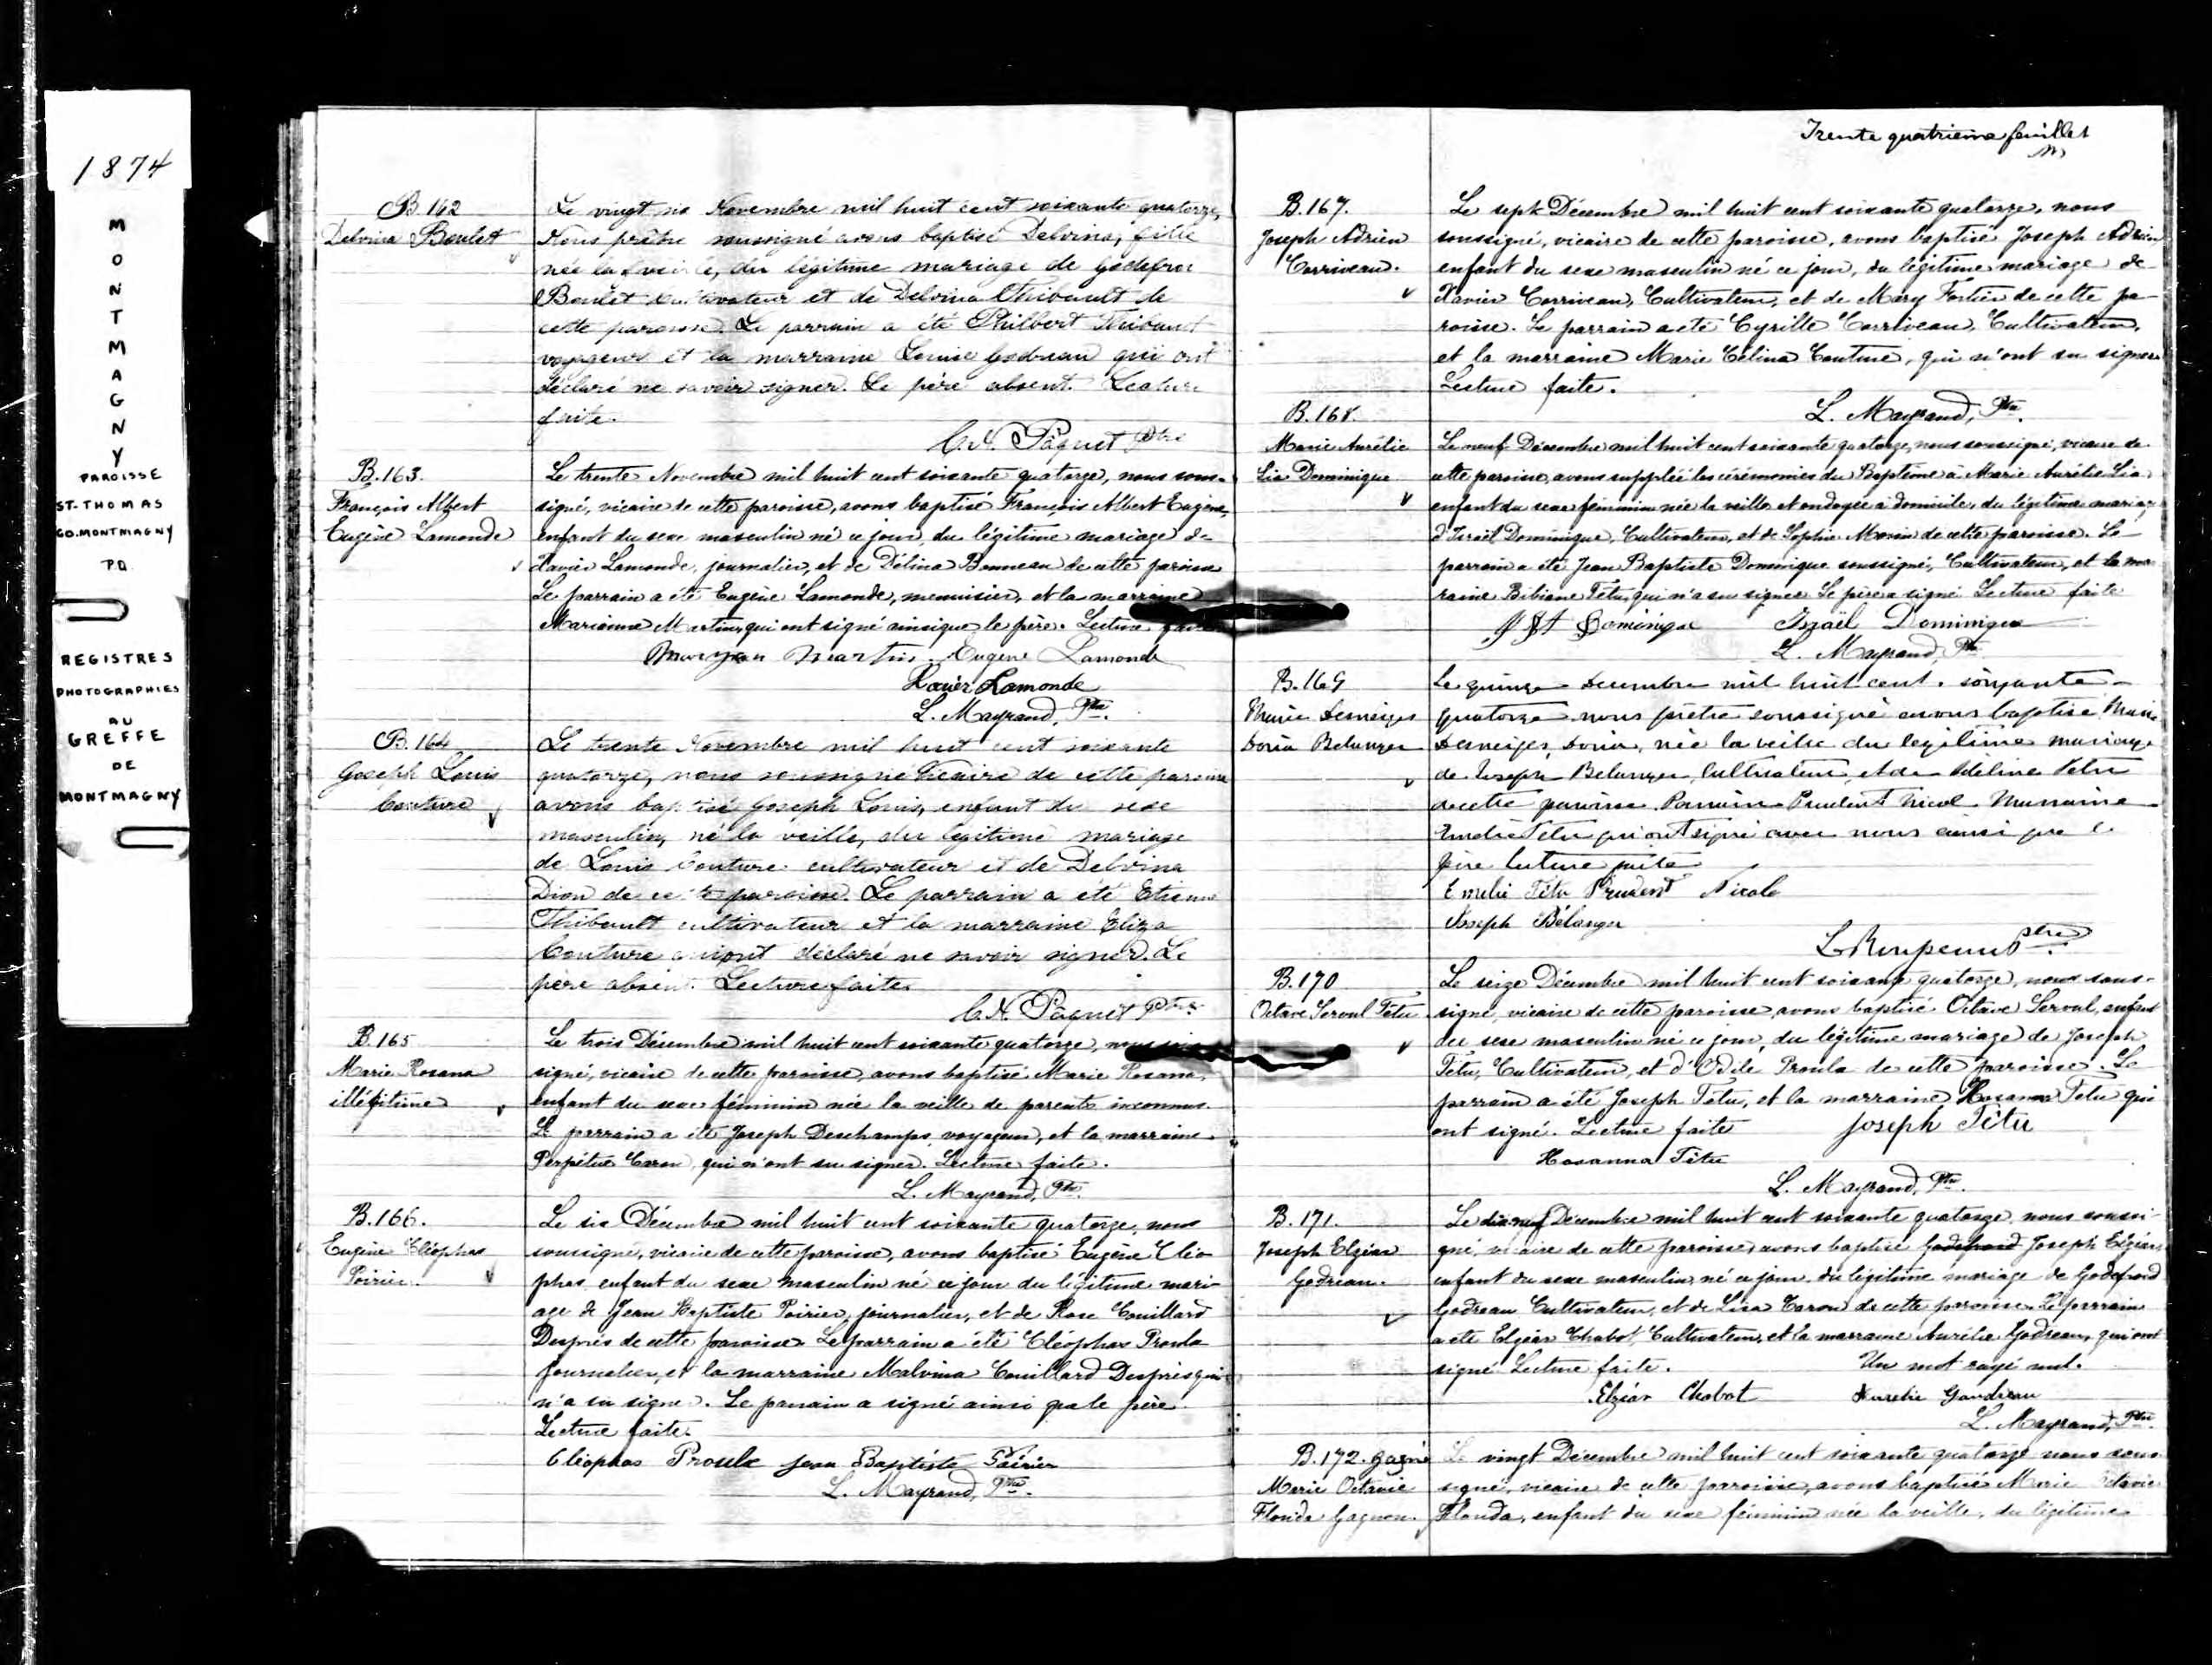 1874
MONTMAGNY
PAROISSE
ST-THOMAS
CO.MONTMAGNY
P.Q.
REGISTRES
PHOTOGRAPHIES
AU
GREFFE
DE
MONTMAGNY
B. 162
Delvina Boulet
Le vingt six Novembre mil huit cent soixante quatorze,
Nous prêtre soussigné avons baptisé Delvina, fille
née la veille, du légitime mariage de Godefroi
Boulet cultivateur et de Delvina Thibault de
cette paroisse. Le parrain a été Philbert Thibault
voyageur et la marraine Louise Godreau qui ont
déclaré ne savoir signer. Le père absent. Lecture
faite.
C.N. Paquet Ptre
B. 163.
François Albert
Eugène Lamonde
Le trente Novembre mil huit cent soixante quatorze, nous sous-
signé, vicaire de cette paroisse, avons baptisé François Albert Eugène,
enfant du sexe masculin né ce jour, du légitime mariage de
Xavier Lamonde, journalier, et de Délina Bonneau de cette paroisse
Le parrain a été Eugène Lamonde, menuisier, et la marraine
Marianne Martin, qui ont signé ainsi que le père. Lecture faite
Maryan Martin. Eugene Lamonde
Xavier Lamonde
L. Mayrand, Ptre.
B. 164
Joseph Louis
Couture
Le trente Novembre mil huit cent soixante
quatorze, nous soussigné Vicaire de cette paroisse
avons baptisé Joseph Louis, enfant du sexe
masculin, né la veille, du légitime mariage
de Louis Couture cultivateur et de Delvina
Dion de cette paroisse. Le parrain a été Etienne
Thibault cultivateur et la marraine Eliza
Couture qui ont déclaré ne savoir signer. Le
père absent. Lecture faite.
C.N. Paquet Ptre
B. 165
Marie Rosana
illégitime
Le trois Décembre mil huit cent soixante quatorze, nous sous
signé, vicaire de cette paroisse, avons baptisé Marie Rosana,
enfant du sexe féminin née la veille de parents inconnus.
Le parrain a été Joseph Deschamps, voyageur, et la marraine
Perpétue Caron, qui n'ont su signer. Lecture faite.
L. Mayrand, Ptre.
B. 166.
Eugène Cléophas
Poirier.
Le six Décembre mil huit cent soixante quatorze, nous
soussigné, vicaire de cette paroisse, avons baptisé Eugène Cléo
phas, enfant du sexe masculin né ce jour du légitime mari-
age de Jean Baptiste Poirier, journalier, et de Rose Couillard
Després de cette paroisse. Le parrain a été Cléophas Proulx
journalier, et la marraine Malvina Couillard Després qui
n'a su signer. Le parrain a signé ainsi que le père.
Lecture faite.
Cléophas Proulx Jean Baptiste Poirier
L. Mayrand, Ptre.
Trente quatrième feuillet
B. 167.
Joseph Adrien
Corriveau.
Le sept Décembre mil huit cent soixante quatorze, nous
soussigné, vicaire de cette paroisse, avons baptisé Joseph Adrien
enfant du sexe masculin né ce jour, du légitime mariage de
Xavier Corriveau, Cultivateur, et de Mary Fortier de cette pa-
roisse. Le parrain a été Cyrille Corriveau, Cultivateur,
et la marraine Marie Célina Couture, qui n'ont su signer
Lecture faite.
L. Mayrand, Ptre.
B. 168.
Marie Aurélie
Lia Dominique
Le neuf Décembre mil huit cent soixante quatorze, nous soussigné, vicaire de
cette paroisse, avons suppléé les cérémonies du Baptême à Marie Aurélie Lia
enfant du sexe féminin née la veille et ondoyée à domicile, du légitime mariage
d'Israël Dominique, Cultivateur, et de Sophie Morin de cette paroisse. Le
parrain a été Jean Baptiste Dominique soussigné, Cultivateur, et la mar
raine Bibiane Têtu, qui n'a su signer Le père a signé Lecture faite
J Bt Dominique Israël Dominique
L. Mayrand, Ptre
B. 169
Marie Desneiges
Doria Belanger
Le quinze decembre mil huit cent soixante
quatorze nous prêtre soussigné avons baptisé Marie
Desneiges, Doria, née la veille du legitime mariage
de Joseph Belanger, Cultivateur, et de Adeline Tetu
de cette paroisse Parrain Prudent Nicol Marraine
Emelie Tetu qui ont signé avec nous ainsi que le
père lecture faite
Emelie Têtu Prudent Nicole
Joseph Bélanger
Ptre
B. 170
Octave Servul Têtu
Le seize Décembre mil huit cent soixante quatorze, nous sous-
signé, vicaire de cette paroisse, avons baptisé Octave Servul, enfant
du sexe masculin né ce jour, du légitime mariage de Joseph
Têtu, Cultivateur, et d'Odile Proulx de cette paroisse. Le
parrain a été Joseph Têtu, et la marraine Hosanna Têtu qui
ont signé. Lecture faite Joseph Têtu
Hosanna Têtu
L. Mayrand, Ptre.
B. 171.
Joseph Elzéar
Godreau.
Le dix neuf Décembre mil huit cent soixante quatorze, nous soussi-
gné, vicaire de cette paroisse, avons baptisé Godefroid Joseph Elzéar,
enfant du sexe masculin, né ce jour, du légitime mariage de Godefroid
Godreau Cultivateur, et de Lisa Caron de cette paroisse. Le parrain
a été Elzéar Chabot, Cultivateur, et la marraine Aurélie Godreau, qui ont
signé Lecture faite. Un mot rayé nul.
Elzéar Chabot Aurélie Gaudreau
L. Mayrand, Ptre.
B. 172. Gagné
Marie Octavie
Florida Gagnon.
Le vingt Décembre mil huit cent soixante quatorze nous sous
signé, vicaire de cette paroisse, avons baptisé Marie Octavie
Florida, enfant du sexe féminin née la veille, du légitime